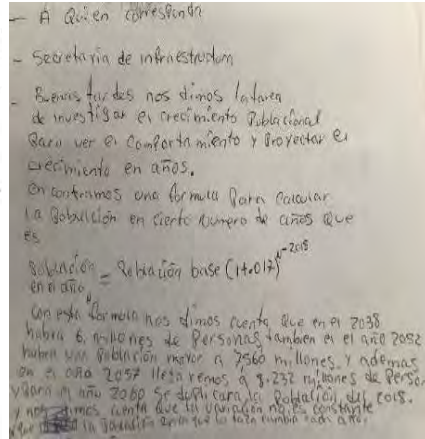 - A Quien corresponda
- Secretaria de infraestructura
- Buenas tardes nos dimos la tarea
de investigar el crecimiento Poblacional
Para ver el Comportamiento y Proyectar el
crecimiento en años.
encontramos una formula Para calcular
la Poblacion en cierto numero de años que
es
Poblacion en el año N = Poblacion base (1+.017)^N-2018
Con esta formula nos dimos cuenta que en el 2038
habra 6. millones de Personas, tambien el el año 2052
habra una Poblacion mayor a 7560 millones, y ademas
en el año 2057 llegaremos a 8.232 millones de Perso.
y Para el año 2060 se duplicara la Poblacion del 2018.
y nos dimos cuenta que la variacion no es constante
la variacion la taza cambio cada año.